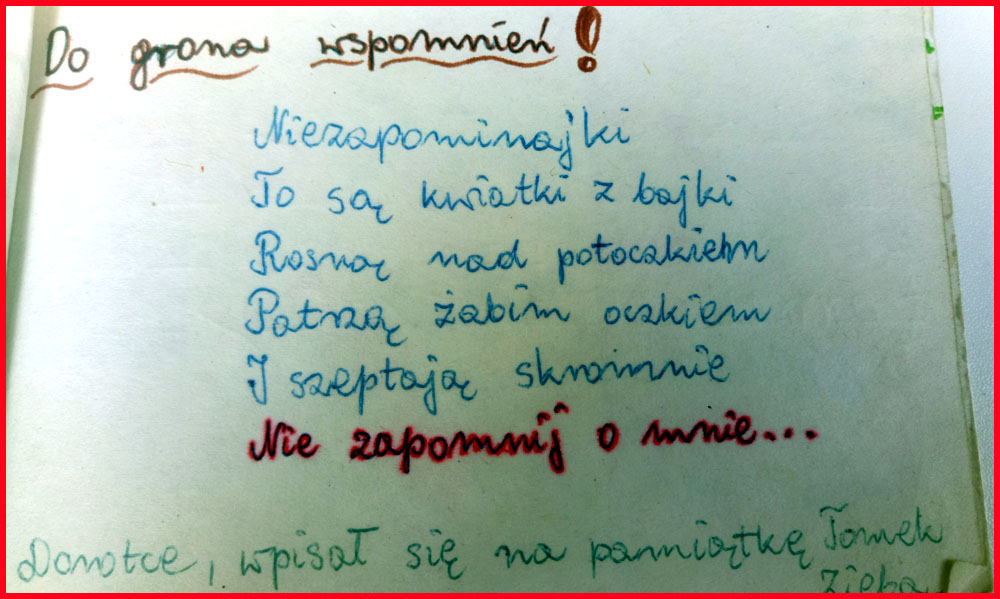 Do grona wspomnień!
Niezapominajki
To są kwiatki z bajki
Rosną nad potoczkiem
Patrzą żabim oczkiem
I szeptają skromnie
Nie zapomnij o mnie...
Dorotce, wpisał się na pamiątkę Tomek
Zięba